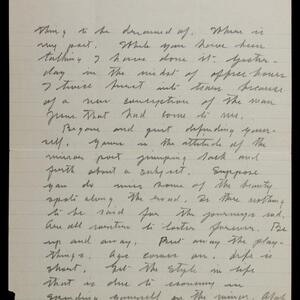 thing to be dreamed of. When is
my part. While you have been
talking I have done it. Yester-
day in the midst of office hours
I twice burst into tears because
of a new conception of the man
Jesus that had come to me.
Begone and quit defending your-
self. Yours is the attitude of the
minor poet jumping back and
forth about a subject. Suppose
you do miss some of the beauty
spots along the road. Is there nothing
to be said for the journeys end.
Are all writers to loiter forever. Be
up and away. Put away the play-
things. Age comes on. Life is
short. Get the style in life
that is due to economy in